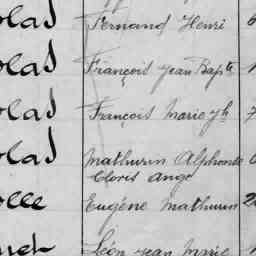 olas Fernand Henri 6
olas François Jean Bapte 1
olas François Marie Jh 7
olas Mathurin Alphonse
Cloris Ange
olle Eugène Mathurin 2
Léon Jean Marie